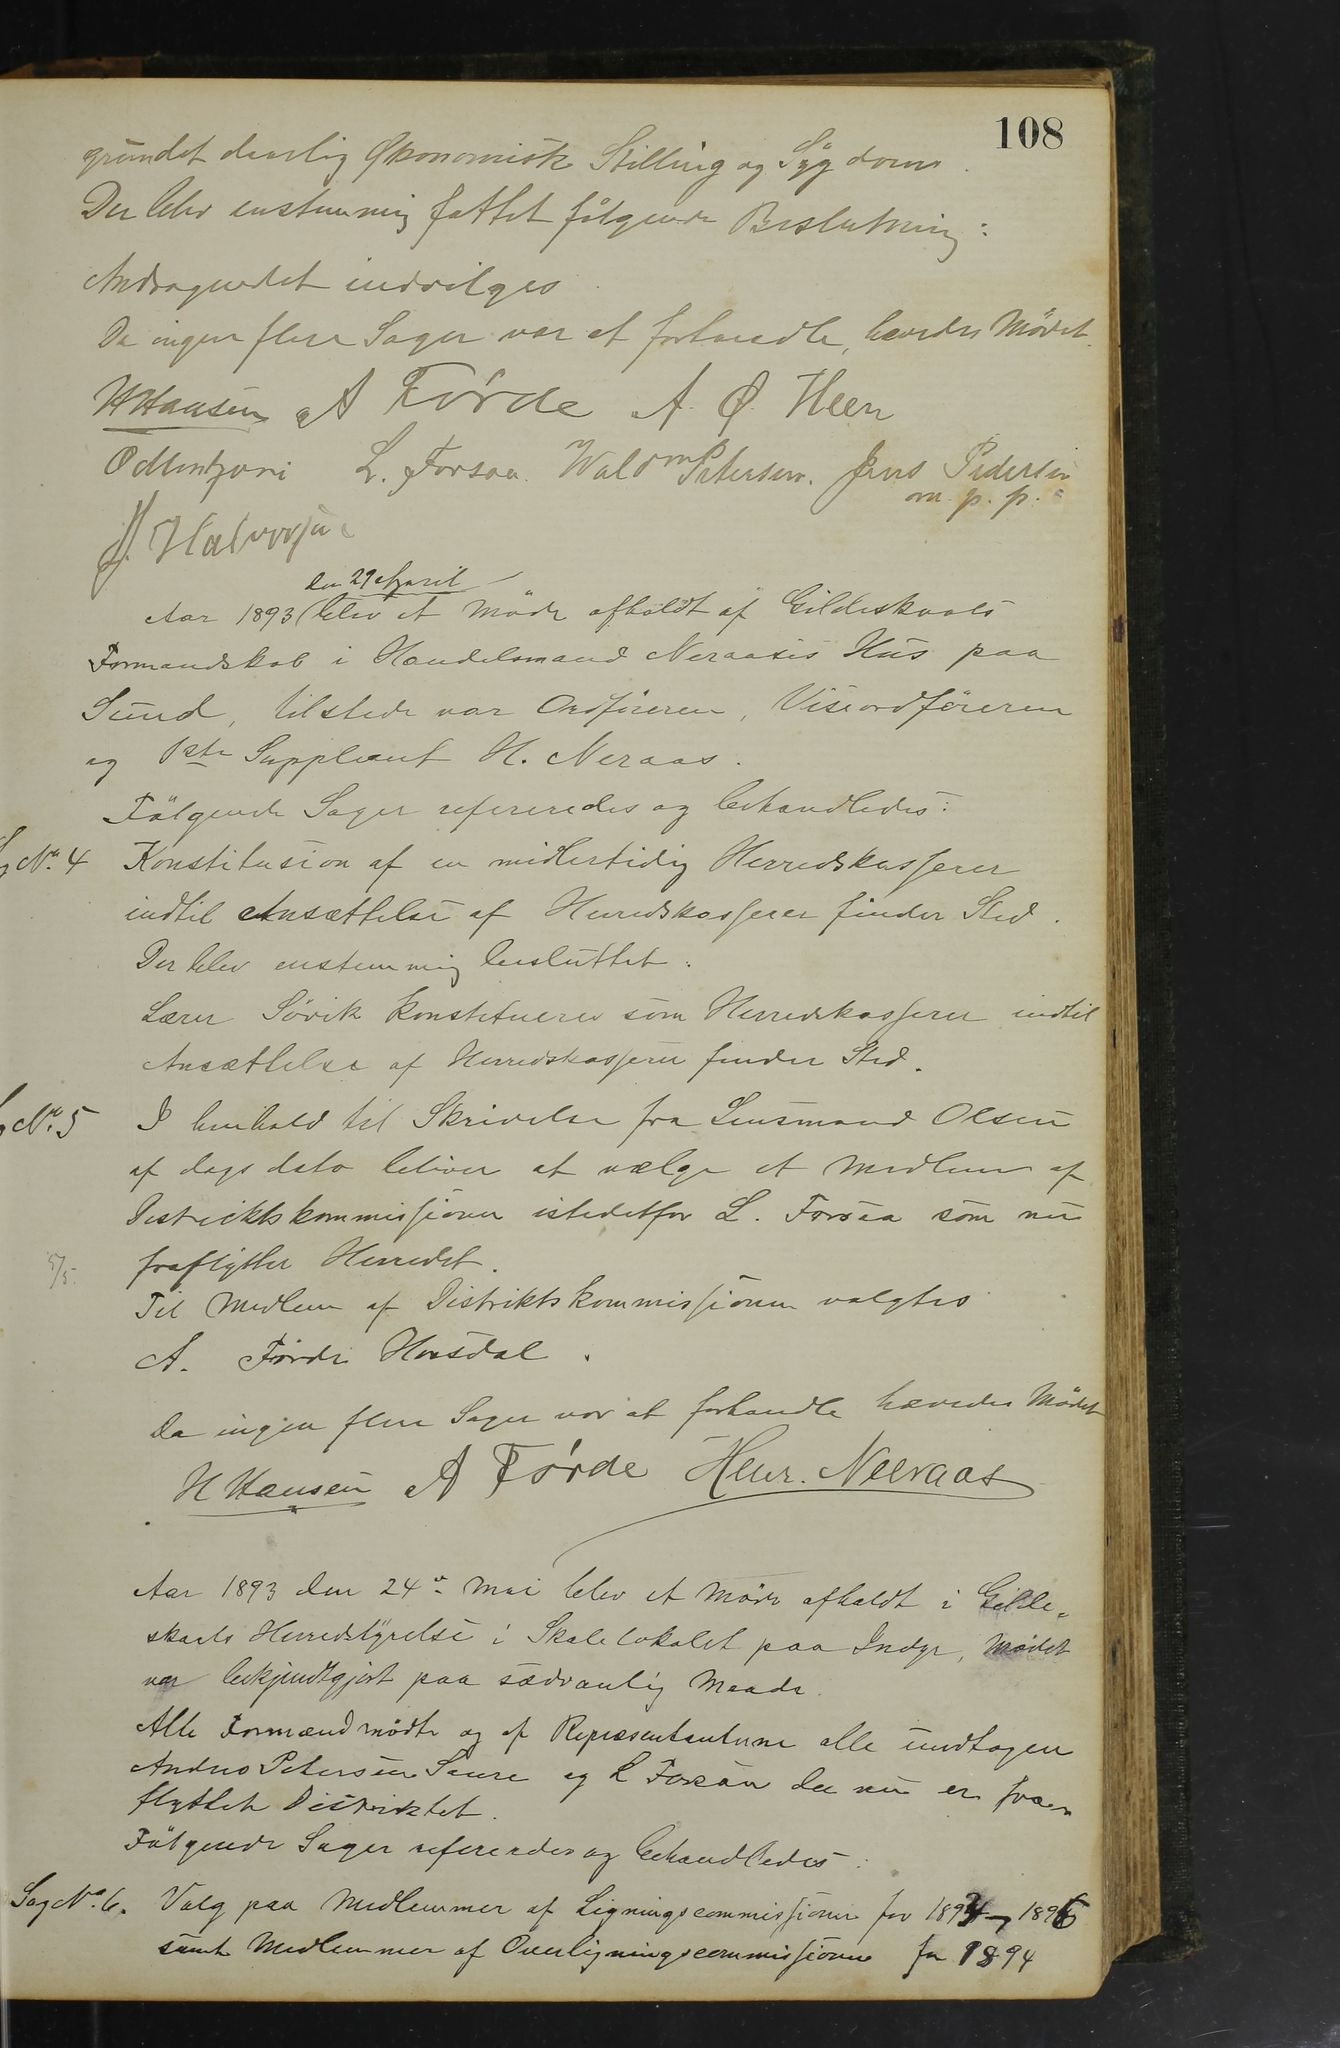 108
grundet daarlig Økonomisk Stilling og Sygdom.
Der blev enstemmig fattet følgende Beslutning:
Andragendet indvilges
Da ingen flere Sager var at forhandle, hævedes Mödet.
H Hansen A Førde A. Ø. Heen
L. Forsaa. Waldm Petersen. Jens Pedersen
m. p. p.
J. Halvorsen
den 29 April
Aar 1893 (blev et Möde afholdt af Gildeskaals
Formandskab i Handelsmand Neraases Hus paa
Sund, tilstede var Ordföreren, Viseordföreren
og 1ste Suppleant H. Neraas.
Fölgende Sager refereredes og behandledes:
No. 4 Konstitusion af en midlertidig Herredskasserer
indtil Ansættelse af Herredskasserer finder Sted.
Der blev enstemmig besluttet:
Lærer Sövik konstitueres som Herredskasserer indtil
Ansættelse af Herredskasserer finder Sted.
No. 5 I henhold til Skrivelse fra Lensmand Olsen
af dags dato bliver at vælge et Medlem af
Distriktskommissionen istedetfor L. Forsaa som nu
5/5. fraflytter Herredet.
Til Medlem af Distriktskommissionen valgtes
A. Förde Horsdal.
Da ingen flere Sager var at forhandle hævedes Mödet
H Hansen A Førde Henr. Neeraas
Aar 1893 den 24de Mai blev et Möde afholdt i Gilde-
skaals Herredstyrelse i Skolelokalet paa Indyr, Mødet
var bekjendtgjort paa sædvanlig Maade.
Alle Formænd mödte og af Repræsentanterne alle undtagen
Andreas Petersen Saure og L Forsaa der nu er fra-
flyttet Distriktet.
Fölgende Sager refereredes og behandledes:
Sag No. 6. Valg paa Medlemmer af Ligningscommissionen for 1894-1896
samt Medlemmer af Overligningscommissionen for 1894